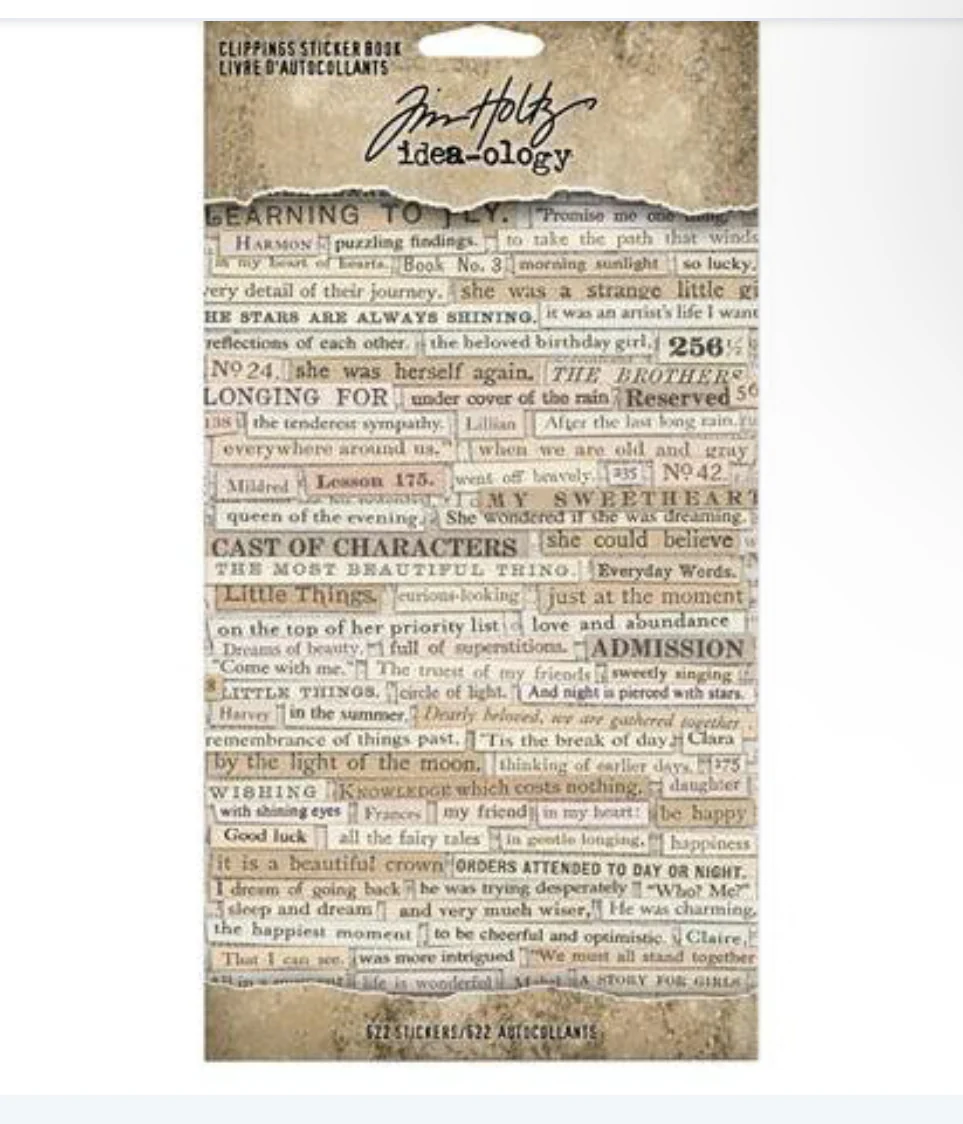 CLIPPINGS STICKER BOOK
LIVRE D'AUTOCOLLANTS
Tim Holtz
idea-ology
LEARNING TO FLY. "Promise me one thing,"
HARMON puzzling findings. to take the path that winds
in my heart of hearts. Book No. 3 morning sunlight so lucky.
very detail of their journey. she was a strange little gi
HE STARS ARE ALWAYS SHINING. it was an artist's life I want
reflections of each other. the beloved birthday girl, 256½
Nº 24. she was herself again. THE BROTHERS
LONGING FOR under cover of the rain Reserved 56
138 the tenderest sympathy. Lillian After the last long rain.
everywhere around us." when we are old and gray
Mildred Lesson 175. went off bravely. 235 Nº 42.
MY SWEETHEART
queen of the evening, She wondered if she was dreaming.
CAST OF CHARACTERS she could believe
THE MOST BEAUTIFUL THING. Everyday Words.
Little Things. curious-looking just at the moment
on the top of her priority list love and abundance
Dreams of beauty. full of superstitions. ADMISSION
"Come with me." The truest of my friends sweetly singing
8 LITTLE THINGS. circle of light. And night is pierced with stars.
Harvey in the summer, Dearly beloved, we are gathered together
remembrance of things past. 'Tis the break of day Clara
by the light of the moon. thinking of earlier days. 175
WISHING KNOWLEDGE which costs nothing, daughter
with shining eyes Frances my friend in my heart! be happy
Good luck all the fairy tales in gentle longing, happiness
it is a beautiful crown ORDERS ATTENDED TO DAY OR NIGHT.
I dream of going back he was trying desperately "Who? Me?"
sleep and dream and very much wiser, He was charming,
the happiest moment to be cheerful and optimistic. Claire,
That I can see. was more intrigued "We must all stand together
all in a moment life is wonderful Mabel A STORY FOR GIRLS
622 STICKERS/622 AUTOCOLLANTS